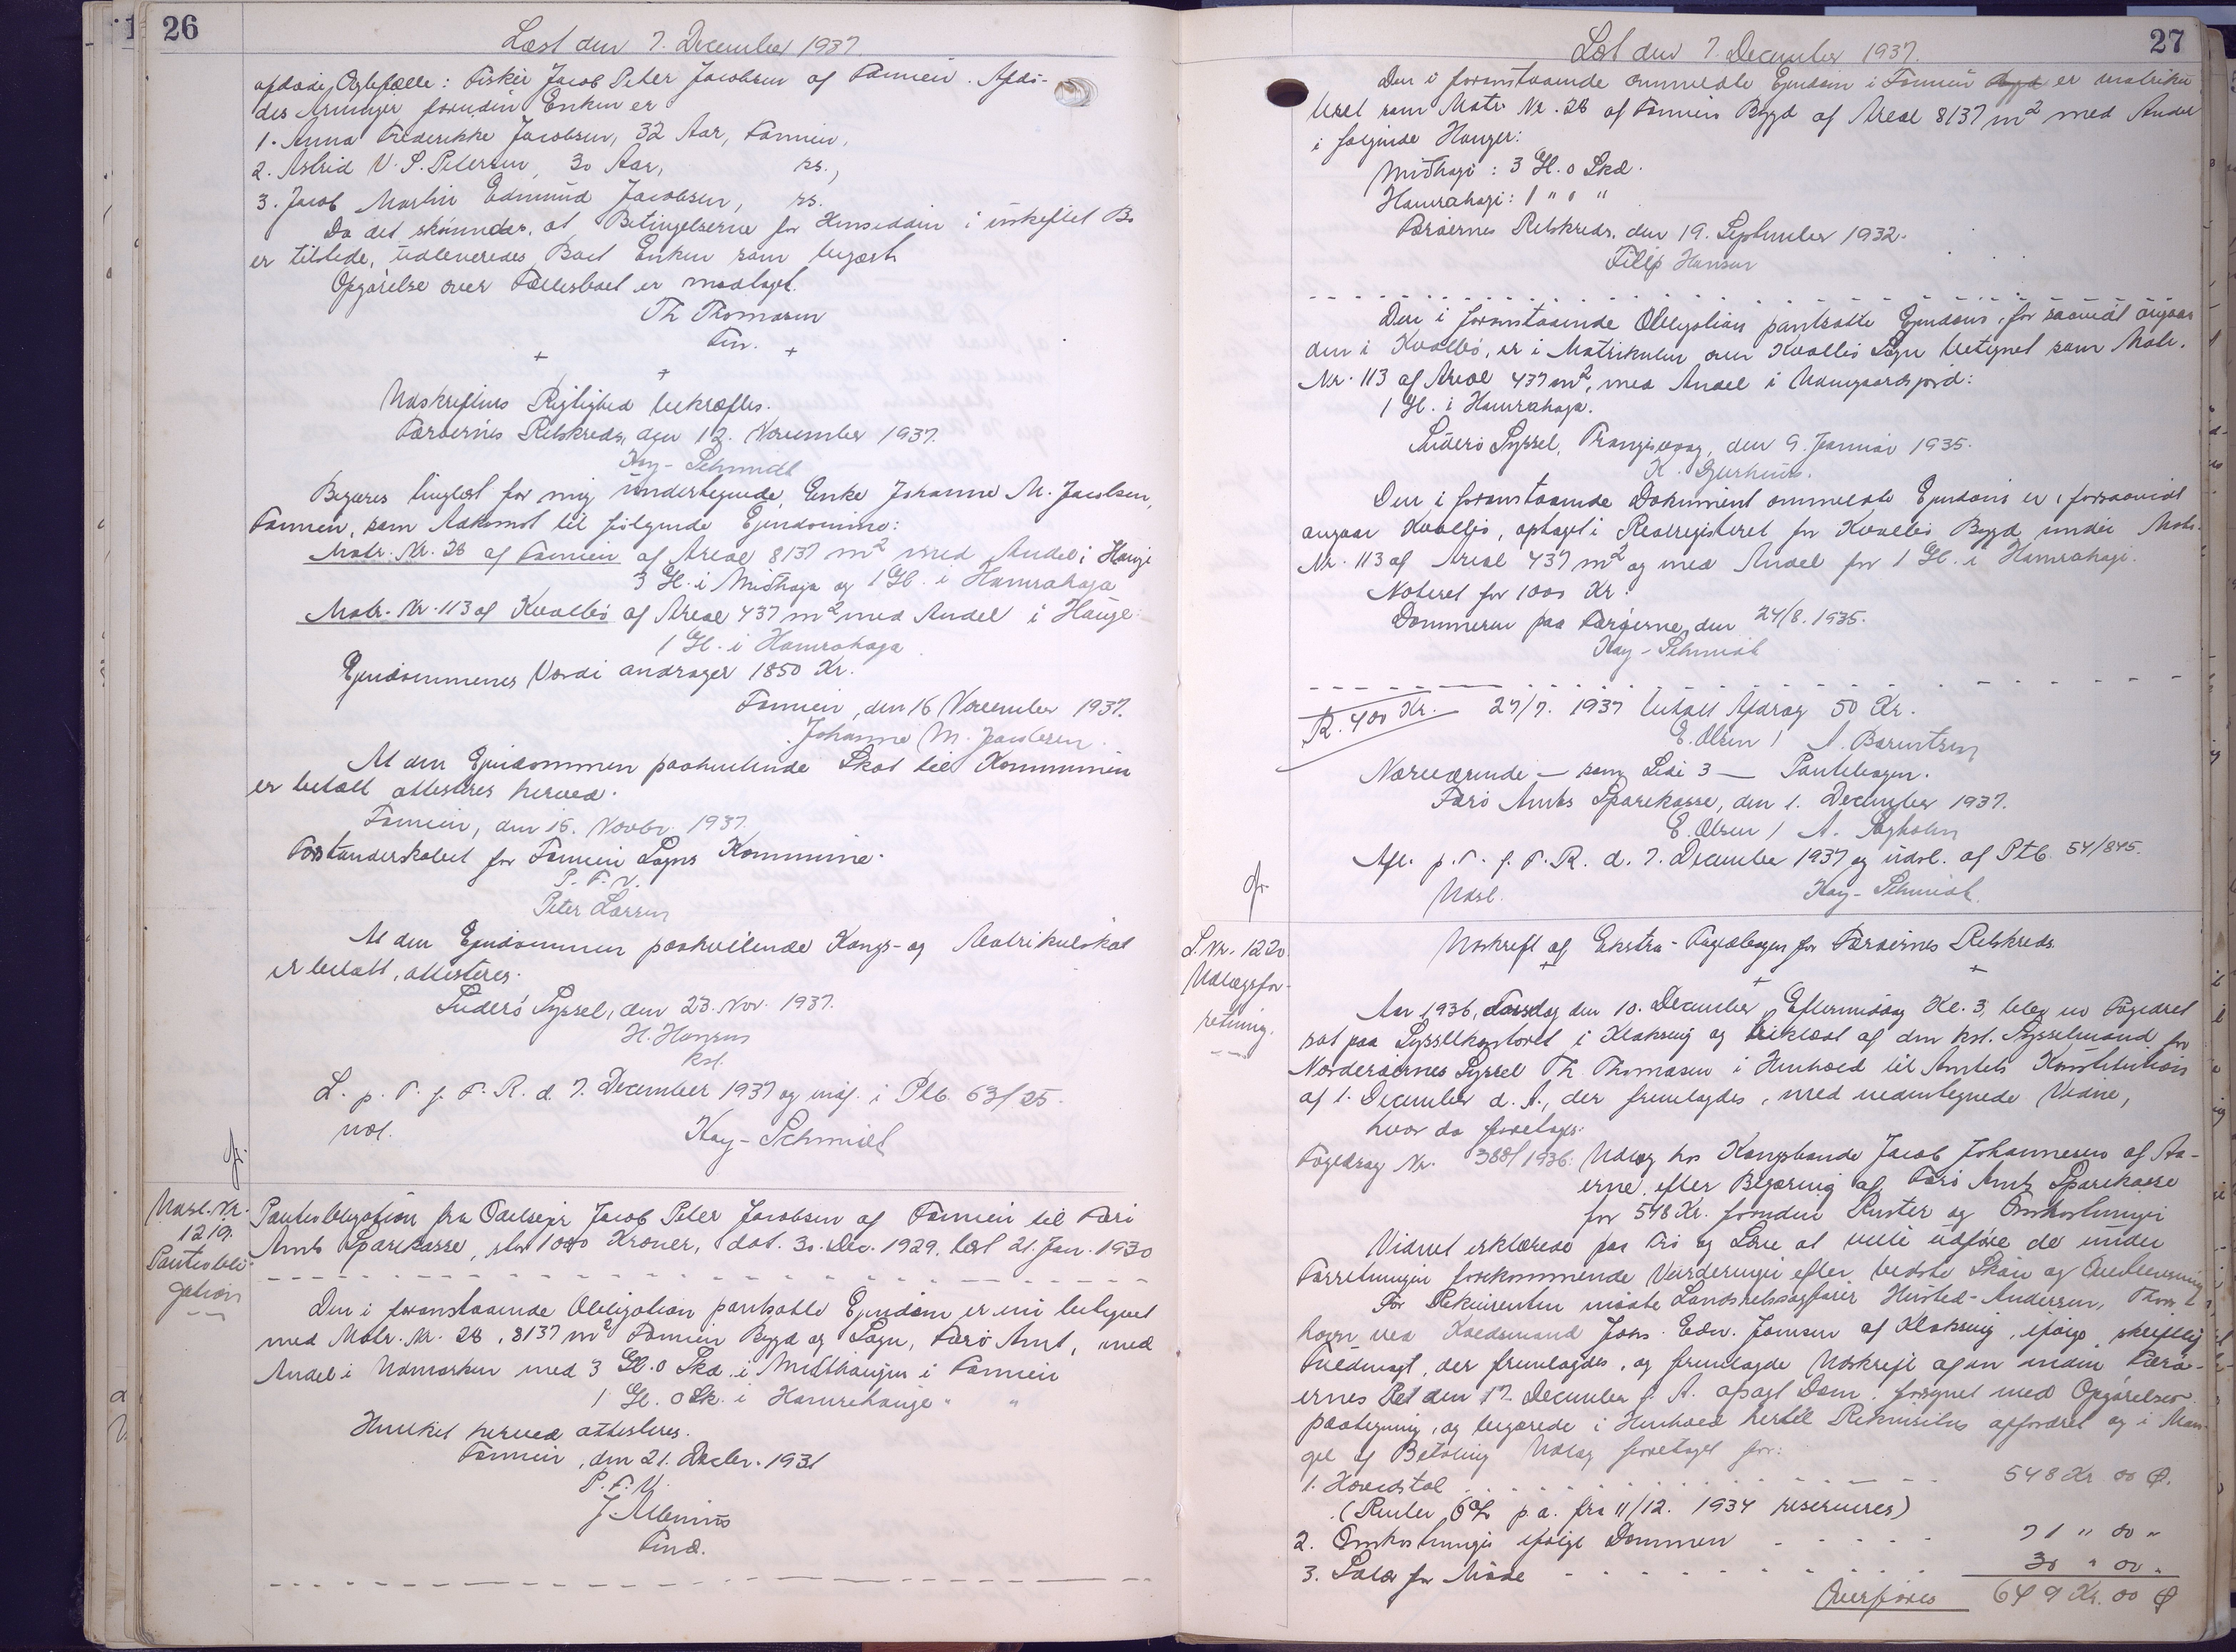 26
Læst den 7. December 1937
afdøde Ægtefælle: Fisker Jacob Peter Jacobsen af Famien. Afdø-
des Arvinger foruden Enken er
1. Anna Frederikke Jacobsen, 32 Aar, Famien,
2. Astrid V. S. Petersen, 30 Aar, rs.,
3. Jacob Martin Edmund Jacobsen, rs.
Da det skønnedes, at Betingelserne for Hensidden i uskiftet Bo
er tilstede, udleveredes Boet Enken som begært.
Opgørelse over Fællesboet er modtaget.
Th Thomasen
Fm.
+ + +
Udskriftens Rigtighed bekræftes.
Færøernes Retskreds, den 12. November 1937.
Kay-Schmidt
Begæres tinglæst for mig undertegnede Enke Johanne M. Jacobsen,
Famien, som Adkomst til følgende Ejendomme:
Matr. Nr. 28 af Famien af Areal 8137 m² med Andel i Hauge
3 Gl. i Miðhaga og 1 Gl. i Hamrahaga
Matr. Nr. 113 af Kvalbø af Areal 437 m² med Andel i Hauge:
1 Gl. i Hamrahaga.
Ejendommenes Værdi andrager 1850 Kr.
Famien, den 16 November 1937.
Johanne M. Jacobsen.
At den Ejendommen paahvilende Skat til Kommunen
er betalt attesteres herved.
Famien, den 15. Novbr. 1937.
Forstanderskabet for Famien Sogns Kommune.
P. F. V.
Peter Larsen
At den Ejendommen paahvilende Kongs- og Matrikulskat
er betalt, attesteres.
Suderø Syssel, den 23. Nov. 1937.
H. Hansen
kst.
L. p. T. f. F. R. d. 7. December 1937 og indf. i Ptb. 63/25.
udl. Kay-Schmidt
Udsl. Nr.
1219.
Pantobli-
gation
Pantobligation fra Odelsejer Jacob Peter Jacobsen af Famien til Færø
Amts Sparekasse, stor 1000 Kroner, dat. 30. Dec. 1929, læst 21. Jan. 1930
Den i foranstaaende Obligation pantsatte Ejendom er nu betegnet
med Matr. Nr. 28, 8137 m² Famien Bygd og Sogn, Færø Amt, med
Andel i Udmarken med 3 Gl. 0 Skd. i Midthaugen i Famien
1 Gl. 0 Sk. i Hamrehauge " "
Hvilket herved attesteres.
Famien, den 21. Decbr. 1931
P. F. V.
Fmd.
27
Læst den 7. December 1937.
Den i foranstaaende ommeldte Ejendom i Famien Bygd er matriku
leret som Matr. Nr. 28 af Famiens Bygd af Areal 8137 m² med Andel
i følgende Hauger:
Miðhagi: 3 Gl. 0 Skd.
Hamrahagi: 1 " 0 "
Færøernes Retskreds, den 19. September 1932.
Filip Hansen
Den i foranstaaende Obligation pantsatte Ejendom, for saavidt angaar
den i Kvalbø, er i Matrikulen over Kvalbø Sogn betegnet som Matr.
Nr. 113 af Areal 437 m², med Andel i Udengaardsjord:
1 Gl. i Hamrahaga.
Suderø Syssel, Trangisvaag, den 9. Januar 1935.
K. Djurhuus.
Den i foranstaaende Dokument ommeldte Ejendom er, forsaavidt
angaar Kvalbø, optaget i Realregisteret for Kvalbø Bygd under Matr.
Nr. 113 af Areal 437 m² og med Andel for 1 Gl. i Hamrahagi.
Noteret for 1000 Kr.
Dommeren paa Færøerne, den 24/8. 1935.
Kay-Schmidt
R. 400 Kr. 27/7. 1937 betalt Afdrag 50 Kr.
E. Olsen / A. Barentsen
Nærværende — som Side 3 — Pantebogen.
Færø Amts Sparekasse, den 1. December 1937.
E. Olsen / A.
Afl. p. T. f. F. R. d. 7. December 1937 og udsl. af Ptb. 54/845.
Udsl. Kay-Schmidt.
L. Nr. 1220.
Udlægsfor-
retning.
Udskrift af Ekstra-Fogedbogen for Færøernes Retskreds.
+ + +
Aar 1936, Torsdag den 10. December Eftermiddag Kl. 3, blev en Fogedret
sat paa Sysselkontoret i Klaksvig og beklædt af den kst. Sysselmand for
Norderøernes Syssel Th. Thomasen i Henhold til Amtets Konstitution
af 1. December d. A., der fremlagdes, med undertegnede Vidne,
hvor da foretoges:
Fogedsag Nr. 388/1936: Udlæg hos Kongsbonde Jacob Johannesen af Aa-
erne efter Begæring af Færø Amts Sparekasse
for 548 Kr. foruden Renter og Omkostninger
Vidnet erklærede paa Tro og Love at ville udføre de under
Forretningen forekommende Vurderinger efter bedste Skøn og Overbevisning
For Rekvirenten mødte Landsretssagfører Husted-Andersen, Thors-
havn ved Kredsmand Johs. Edv. Jensen af Klaksvig, ifølge skriftlig
Fuldmagt, der fremlagdes, og fremlagde Udskrift af en inden Færø-
ernes Ret den 17. December f. A. afsagt Dom, forsynet med Opgørelses
paategning, og begærede i Henhold hertil Rekvisitus affordret og i Man-
gel af Betaling Udlæg foretaget for:
1. Hovedstol 548 Kr. 00 Ø.
(Renter 6% p. a. fra 11/12. 1934 reserveres)
2. Omkostninger ifølge Dommen 71 " 00 "
3. Salær for Møde 30 " 00 "
Overføres 649 Kr. 00 Ø